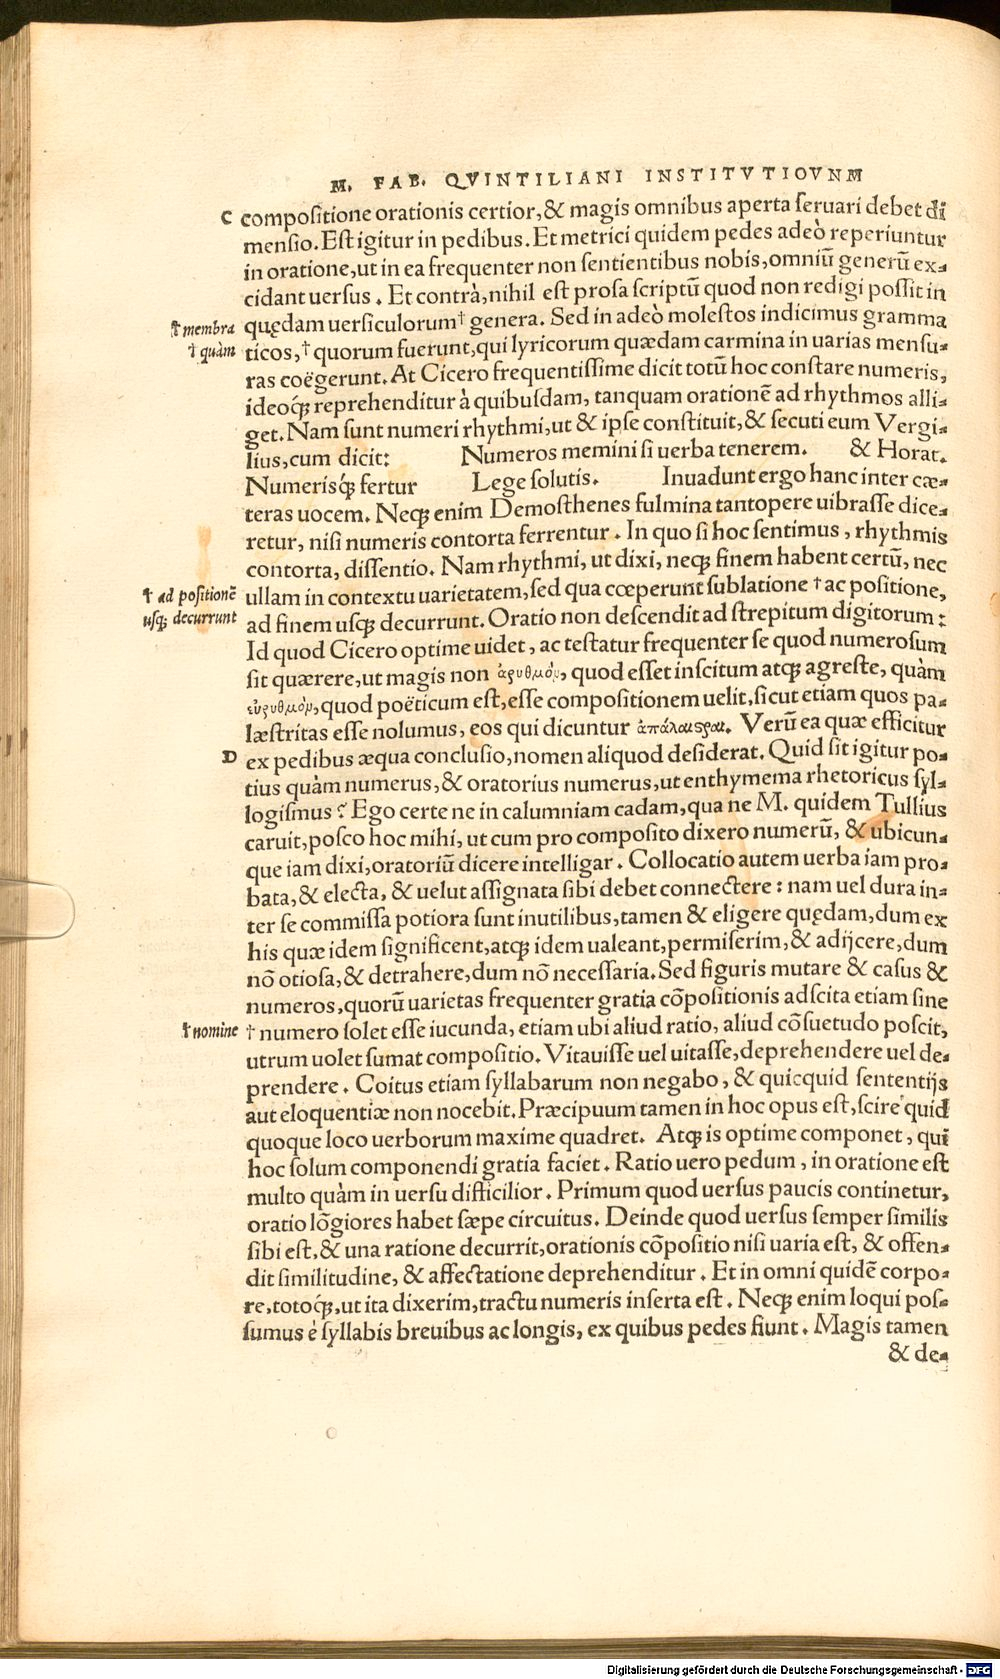 M. FAB. QVINTILIANI INSTITVTIOVNM
C compositione orationis certior, & magis omnibus aperta seruari debet di
mensio. Est igitur in pedibus. Et metrici quidem pedes adeò reperiuntur
in oratione, ut in ea frequenter non sentientibus nobis, omniũ generũ ex-
cidant uersus. Et contrà, nihil est prosa scriptũ quod non redigi possit in
†membra quędam uersiculorum† genera. Sed in adeò molestos indicimus gramma
†quàm ticos, † quorum fuerunt, qui lyricorum quædam carmina in uarias mensu-
ras coëgerunt. At Cicero frequentissime dicit totũ hoc constare numeris,
ideoq́; reprehenditur à quibusdam, tanquam orationẽ ad rhythmos alli-
get. Nam sunt numeri rhythmi, ut & ipse constituit, & secuti eum Vergi-
lius, cum dicit: Numeros memini si uerba tenerem. & Horat.
Numerisq́; fertur Lege solutis. Inuadunt ergo hanc inter cæ-
teras uocem. Neq; enim Demosthenes fulmina tantopere uibrasse dice-
retur, nisi numeris contorta ferrentur. In quo si hoc sentimus, rhythmis
contorta, dissentio. Nam rhythmi, ut dixi, neq; finem habent certũ, nec
† ad positionẽ ullam in contextu uarietatem, sed qua cœperunt sublatione † ac positione,
usq; decurrunt ad finem usq; decurrunt. Oratio non descendit ad strepitum digitorum:
Id quod Cicero optime uidet, ac testatur frequenter se quod numerosum
sit quærere, ut magis non ἀρυθμὸν, quod esset inscitum atq; agreste, quàm
εὐρυθμὸν, quod poëticum est, esse compositionem uelit, sicut etiam quos pa-
læstritas esse nolumus, eos qui dicuntur ἀπάλαιςραι. Verũ ea quæ efficitur
D ex pedibus æqua conclusio, nomen aliquod desiderat. Quid sit igitur po-
tius quàm numerus, & oratorius numerus, ut enthymema rhetoricus syl-
logismus? Ego certe ne in calumniam cadam, qua ne M. quidem Tullius
caruit, posco hoc mihi, ut cum pro composito dixero numerũ, & ubicun-
que iam dixi, oratoriũ dicere intelligar. Collocatio autem uerba iam pro-
bata, & electa, & uelut assignata sibi debet connectere: nam uel dura in-
ter se commissa potiora sunt inutilibus, tamen & eligere quędam, dum ex
his quæ idem significent, atq; idem ualeant, permiserim, & adijcere, dum
nõ otiosa, & detrahere, dum nõ necessaria. Sed figuris mutare & casus &
numeros, quorũ uarietas frequenter gratia cõpositionis adscita etiam sine
†nomine † numero solet esse iucunda, etiam ubi aliud ratio, aliud cõsuetudo poscit,
utrum uolet sumat compositio. Vitauisse uel uitasse, deprehendere uel de-
prendere. Coitus etiam syllabarum non negabo, & quicquid sententijs
aut eloquentiæ non nocebit. Præcipuum tamen in hoc opus est, scire quid
quoque loco uerborum maxime quadret. Atq; is optime componet, qui
hoc solum componendi gratia faciet. Ratio uero pedum, in oratione est
multo quàm in uersu difficilior. Primum quod uersus paucis continetur,
oratio lõgiores habet sæpe circuitus. Deinde quod uersus semper similis
sibi est, & una ratione decurrit, orationis cõpositio nisi uaria est, & offen-
dit similitudine, & affectatione deprehenditur. Et in omni quidẽ corpo-
re, totoq́;, ut ita dixerim, tractu numeris inserta est. Neq; enim loqui pos-
sumus è syllabis breuibus ac longis, ex quibus pedes fiunt. Magis tamen
& de-
Digitalisierung gefördert durch die Deutsche Forschungsgemeinschaft - DFG